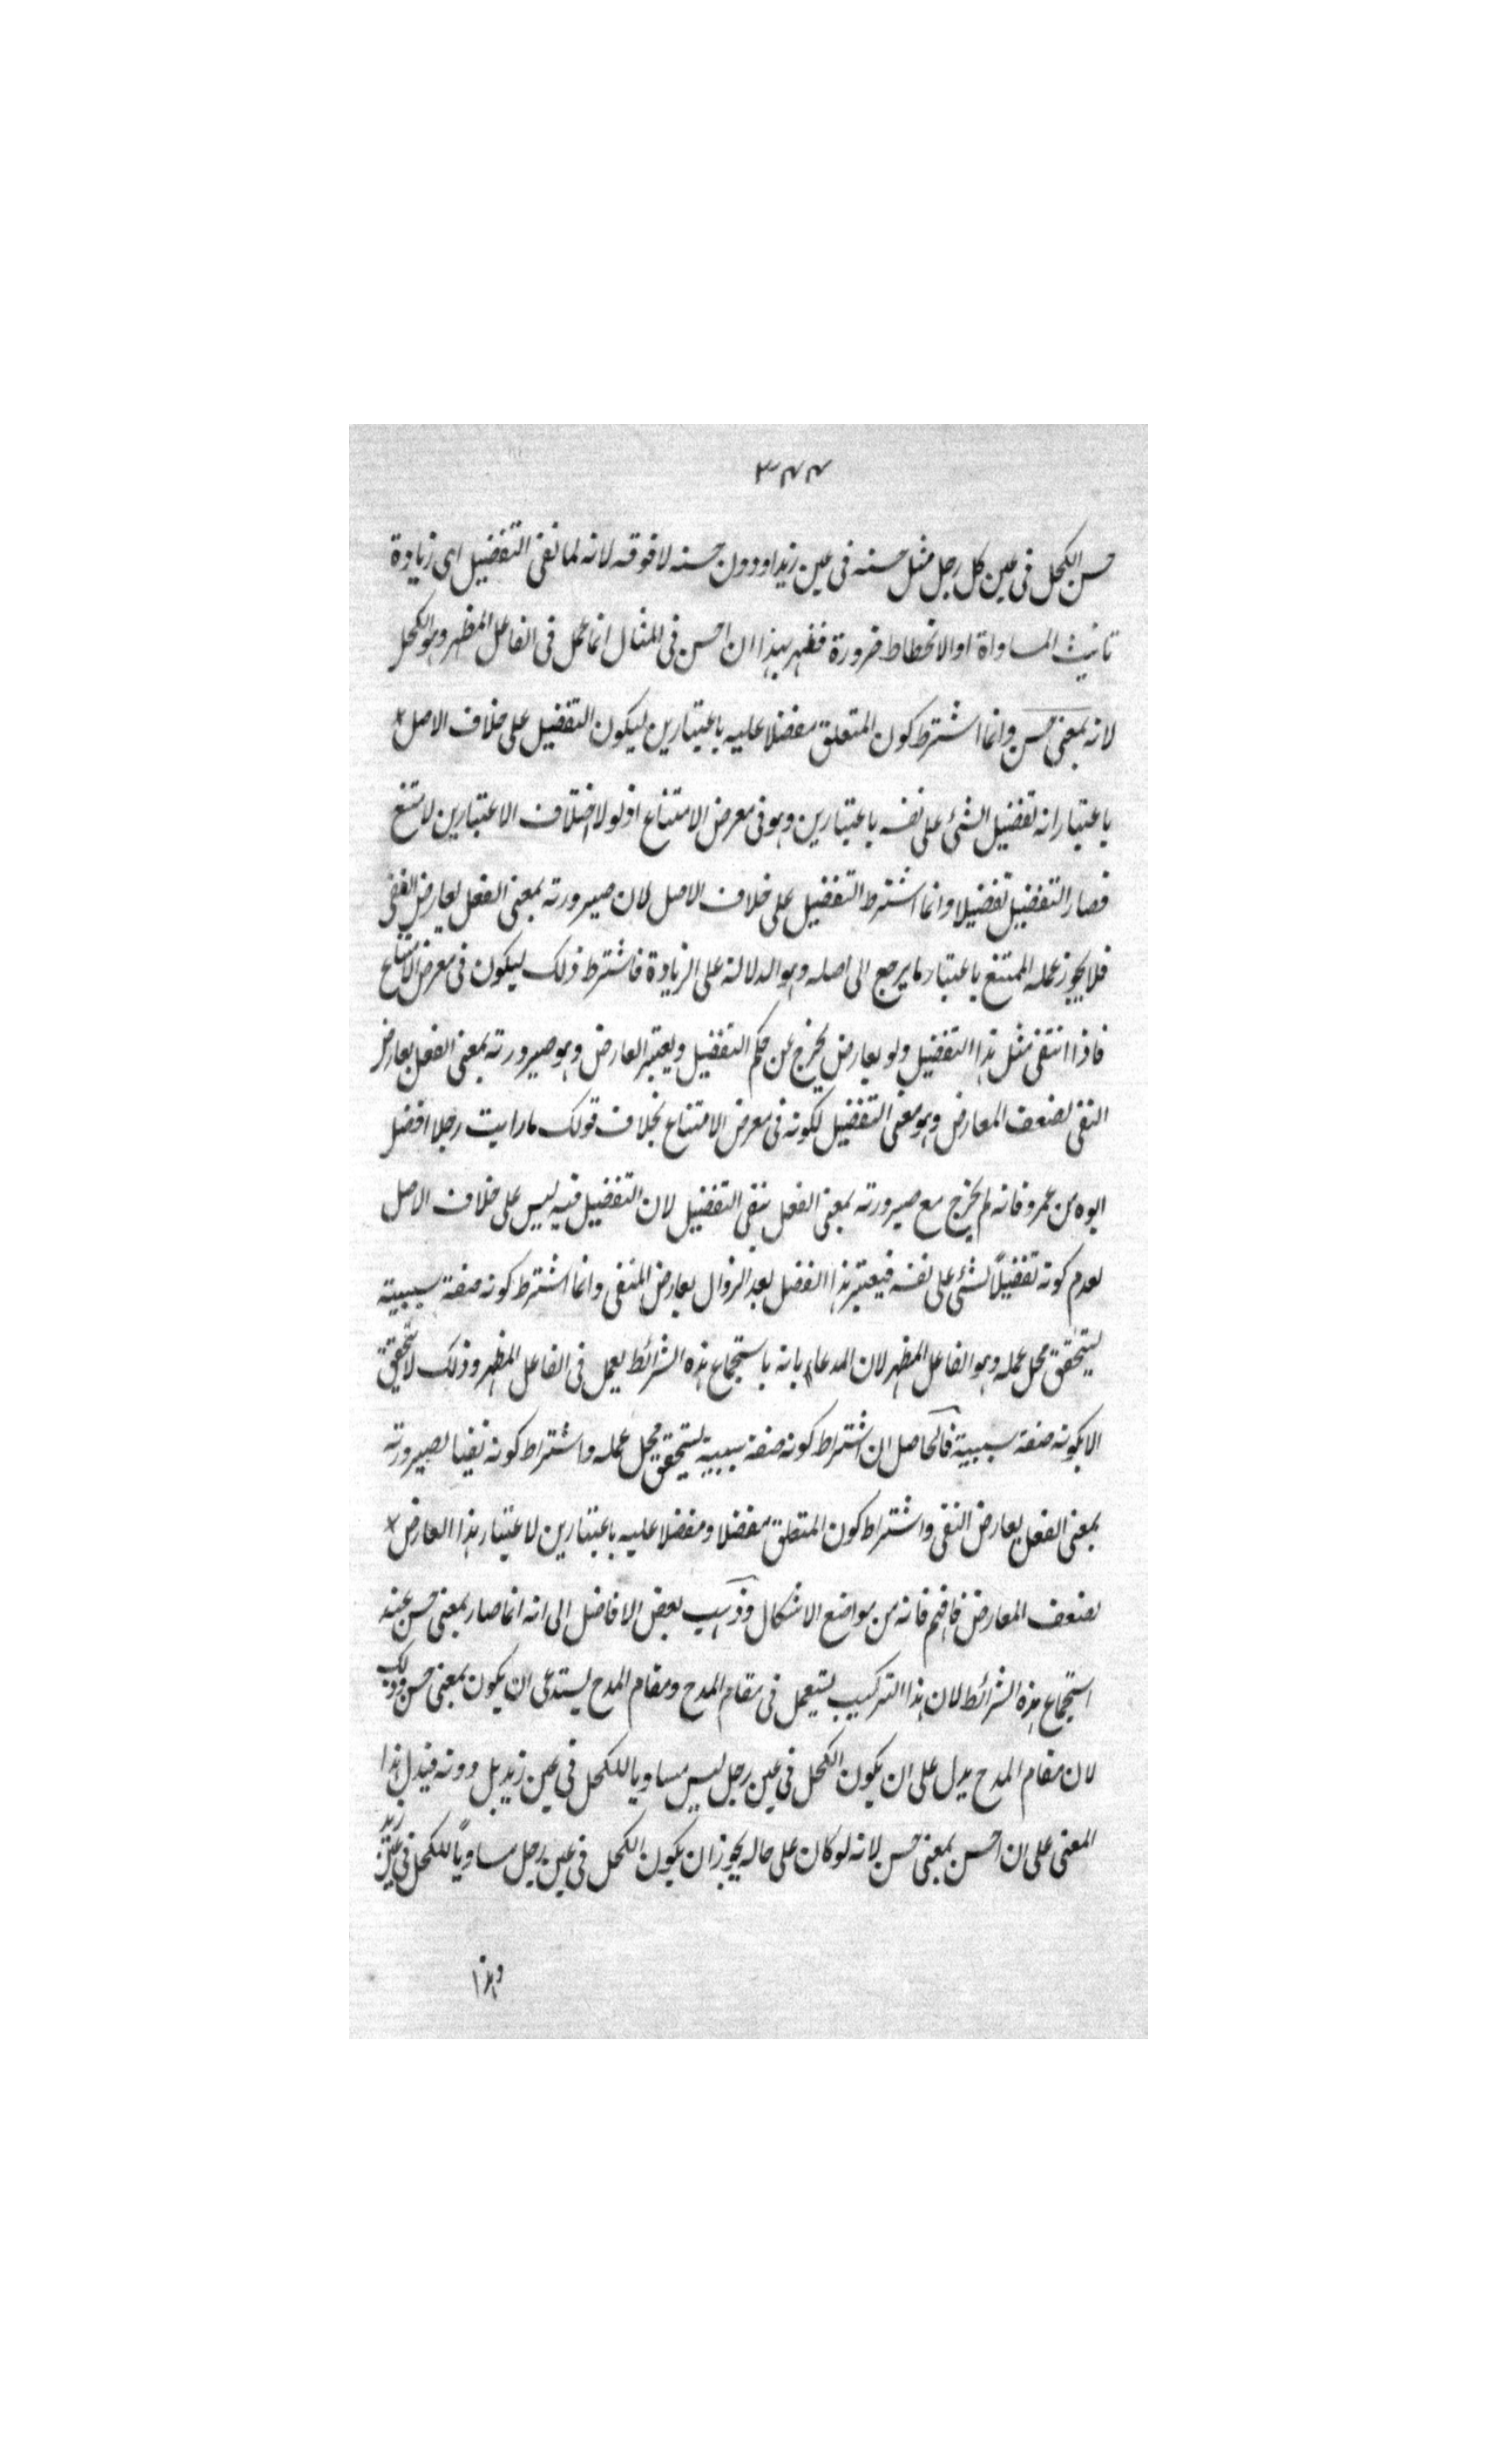 ٣٤٤
حسن الكحل فى عين كل رجل مثل حسنه فى عين زيد او دون حسنه لا فوقه لانه لما نفى التفضيل اى زيادة
المساواة او الانحطاط ضرورة فظهر بهذا ان احسن فى المثال انما عمل فى الفاعل المظهر وهو الكحل
لانه بمعنى حسن وانما اشترط كون المتعلق مفضلا عليه باعتبارين ليكون التفضيل على خلاف الاصل
باعتبار انه تفضيل الشئ على نفسه باعتبارين وهو فى معرض الامتناع اذ لولا اختلاف الاعتبارين لامتنع
فصار التفضيل تفضيلا وانما اشترط التفضيل على خلاف الاصل لان صيرورته بمعنى الفعل بعارض النفى
فلا يجوز عمله الممتنع باعتبار ما يرجع الى اصله وهو الدلالة على الزيادة فاشترط ذلك ليكون فى معرض الامتناع
فاذا انتفى مثل هذا التفضيل ولو بعارض يخرج عن حكم التفضيل ويعتبر العارض وهو صيرورته بمعنى الفعل بعارض
النفى لضعف المعارض وهو معنى التفضيل لكونه فى معرض الامتناع بخلاف قولك ما رايت رجلا افضل
ابوه من عمرو فانه لم يخرج مع صيرورته بمعنى الفعل بنفى التفضيل لان التفضيل فيه ليس على خلاف الاصل
لعدم كونه تفضيلاً لشئ على نفسه فيعتبر هذا الفضل بعد الزوال بعارض المنفى وانما اشترط كونه صفة سببية
ليتحقق محل عمله وهو الفاعل المظهر لان المدعاء بانه باستجماع هذه الشرائط يعمل فى الفاعل المظهر وذلك لا يتحقق
الا بكونه صفة سببية فالحاصل ان اشتراط كونه صفة سببية ليتحقق محل عمله واشتراط كونه نفيا لصيرورته
بمعنى الفعل بعارض النفى واشتراط كون المتعلق مفضلا ومفضلا عليه باعتبارين لاعتبار هذا العارض
لضعف المعارض فافهم فانه من مواضع الاشكال وذهب بعض الافاضل الى انه انما صار بمعنى حسن عند
استجماع هذه الشرائط لان هذا التركيب يستعمل فى مقام المدح ومقام المدح يستدعى ان يكون بمعنى حسن وذلك
لان مقام المدح يدل على ان يكون الكحل فى عين رجل ليس مساويا للكحل فى عين زيد بل دونه فيدل هذا
المعنى على ان احسن بمعنى حسن لانه لو كان على حاله يجوز ان يكون الكحل فى عين رجل مساوياً للكحل فى عين زيد
وهذا